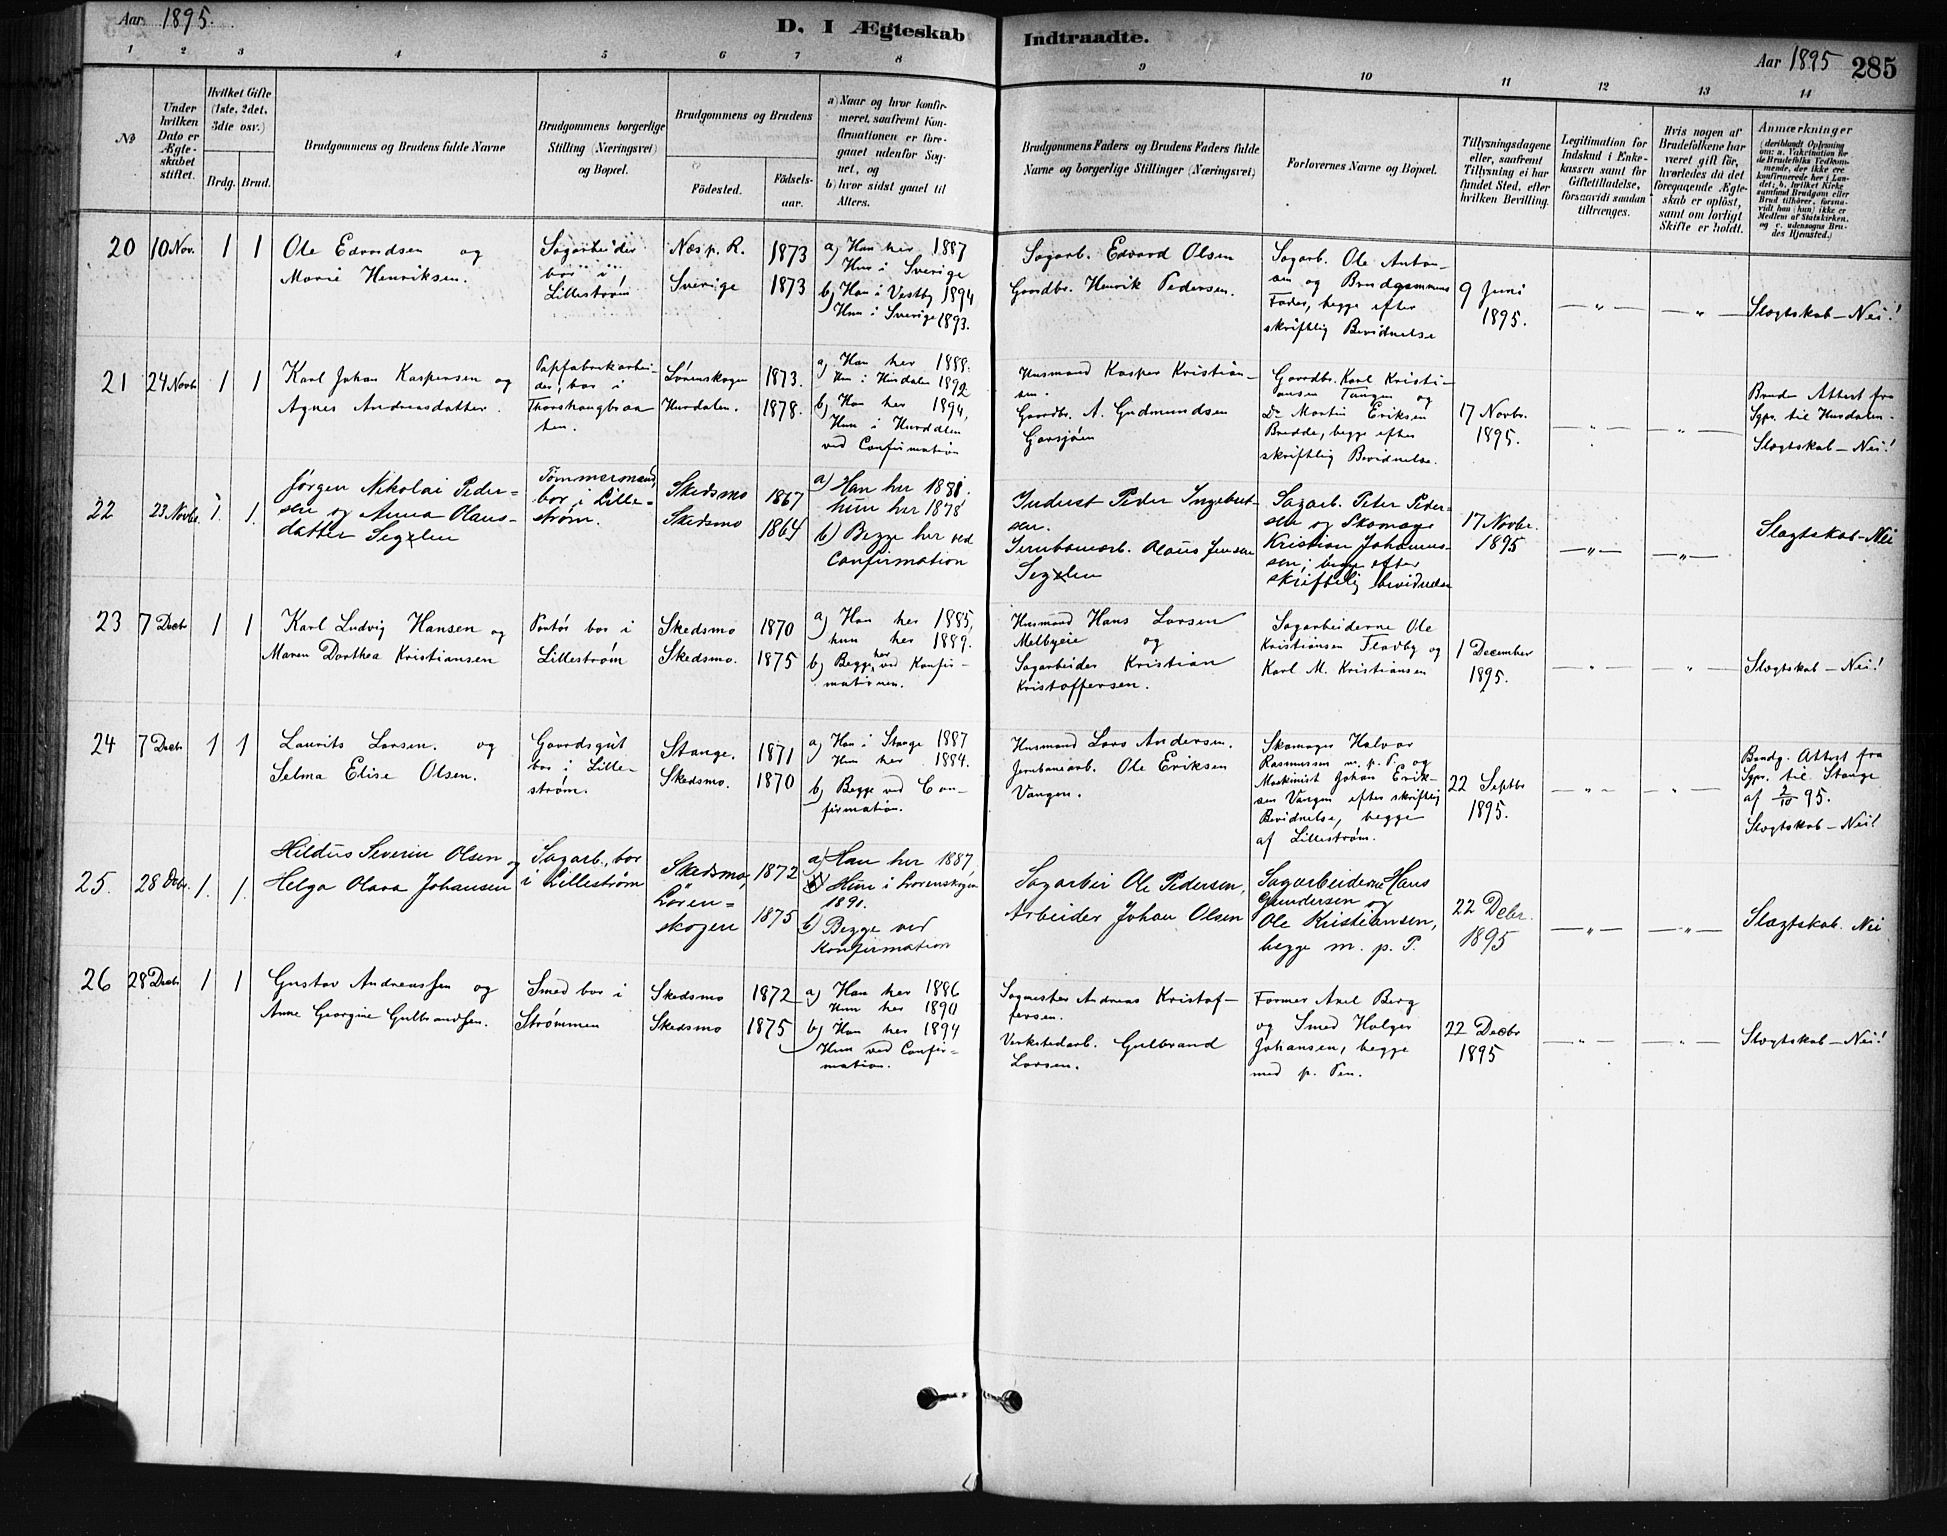 Aar 1895.
D. I Ægteskab Indtraadte.
Aar 1895 285
1 2 3 4 5 6 7 8 9 10 11 12 13 14
No
Under hvilken Dato er Ægteskabet stiftet.
Hvilket Gifte (1ste, 2det, 3die osv.)
Brdg. Brud.
Brudgommens og Brudens fulde Navne
Brudgommens borgerlige Stilling (Næringsvei) og Bopæl.
Brudgommens og Brudens
Födested.
Födsels-aar.
a) Naar og hvor konfirmeret, saafremt Konfirmationen er foregaaet udenfor Sognet, og
b) hvor sidst gaaet til Alters.
Brudgommens Faders og Brudens Faders fulde Navne og borgerlige Stillinger (Næringsvei)
Forlovernes Navne og Bopæl.
Tillysningsdagene eller, saafremt Tillysning ei har fundet Sted, efter hvilken Bevilling.
Legitimation for Indskud i Enkekassen samt for Giftetilladelse, forsaavidt saadan tiltrænges.
Hvis nogen af Brudefolkene har været gift før, hvorledes da det foregaaende Ægteskab er oplöst, samt om lovligt Skifte er holdt.
Anmærkninger
(deriblandt Oplysning om: a. Vakcination for de Brudefolks Vedkommende, der ikke ere konfirmerede her i Landet; b. hvilket Kirkesamfund Brudgom eller Brud tilhörer, forsaavidt han (hun) ikke er Medlem af Statskirken, og c. udensogns Brudes Hjemsted.)
20
10 Nov.
1 1
Ole Edvardsen og
Marie Henriksen.
Sagarbeider
bor i
Lillestrøm
Næs p. R.
Sverige
1873
1873
a) Han her 1887
Hun i Sverige
b) Han i Vestby 1894
Hun i Sverige 1893.
Sagarb. Edvard Olsen
Gaardbr. Henrik Pedersen.
Sagarb. Ole Anton-
sen og Brudgommens
Fader, begge efter
skriftlig Bevidnelse
9 Juni
1895.
— „ —
— „ —
Slægtskab – Nei!
21
24 Novbr
1 1
Karl Johan Kaspersen og
Agnes Andreasdatter.
Papfabrikarbei-
der, bor i
Thorshaugbraa
ten.
Lørenskogen
Hurdalen.
1873.
1878.
a) Han her 1888.
Hun i Hurdalen 1892
b) Han her 1894,
Hun i Hurdalen
ved Confirmation
Husmand Kasper Kristian-
sen.
Gaardbr. A. Gudmundsen
Garsjøen
Gaardbr. Karl Kristi-
ansen Tangen og
Do Martin Eriksen
Bredde, begge efter
skriftlig Bevidnelse.
17 Novbr.
1895.
— „ —
— „ —
Bruden Attest fra
Sgpr. til Hurdalen.
Slægtskab – Nei!
22
23 Novbr.
1. 1.
Jørgen Nikolai Peder-
sen og Anna Olaus-
datter
Tømmermand,
bor i Lille-
strøm.
Skedsmo
Skedsmo
1867
1864
a) Han her 1881.
hun her 1878
b) Begge her ved
Confirmation
Inderst Peder Ingebret-
sen.
Jernbanearb. Olaus Jensen
Sagarb. Peter Peder-
sen og Skomager
Kristian Johannes-
sen, begge efter
skriftelig bevidnelse
17 Novbr.
1895
— „ —
— „ —
Slægtskab – Nei
23
7 Decbr
1 1
Karl Ludvig Hansen og
Maren Dorthea Kristiansen
Portør bor i
Lillestrøm
Skedsmo
Skedsmo.
1870
1875
a) Han her 1885,
hun her 1889.
b) Begge her ved Konfir-
mationen.
Husmand Hans Larsen
Melbyeie og
Sagarbeider Kristian
Kristoffersen.
Sagarbeiderne Ole
Kristiansen Fladby og
Karl M. Kristiansen
1 December
1895.
— „ —
— „ —
Slægtskab – Nei!
24
7 Decbr
1 1
Laurits Larsen. og
Selma Elise Olsen.
Gaardsgut
bor i Lille-
strøm.
Stange.
Skedsmo.
1871
1870
a) Han i Stange 1887
Hun her 1884.
b) Begge ved Con-
firmation.
Husmand Lars Andersen.
Jernbanearb. Ole Eriksen
Vangen.
Skomager Halvor
Rasmussen m. p. P. og
Maskinist Johan Erik-
sen Vangen efter skriftlig
Bevidnelse, begge
af Lillestrøm.
22 Septbr
1895.
— „ —
— „ —
Brudg. Attest fra
Sgpr. til Stange
af 2/10 95.
Slægtskab – Nei!
25.
28 Debr.
1. 1.
Hildus Severin Olsen og
Helga Olava Johansen
Sagarb., bor
i Lillestrøm
Skedsmo,
Lören=
skogen
1872
1875
a) Han her 1887,
Hun i Lörenskogen
1891.
b) Begge ved
Konfirmation
Sagarbei Ole Pedersen,
Arbeider Johan Olsen
Sagarbeiderne Hans
Gundersen og
Ole Kristiansen,
begge m. p. P.
22 Debr.
1895
— „ —
— „ —
Slægtskab. Nei
26
28 Decbr
1 1
Gustav Andreassen og
Anne Georgine Gulbrandsen.
Smed bor i
Strømmen
Skedsmo
Skedsmo
1872
1875
a) Han her 1886
Hun her 1890
b) Han her 1894
Hun ved Confir-
mation.
Sagmester Andreas Kristof-
fersen.
Verkstedarb. Gulbrand
Larsen.
Former Axel Berg
og Smed Holger
Johansen, begge
med p. Pen.
22 Decbr
1895
— „ —
— „ —
Slægtskab – Nei!